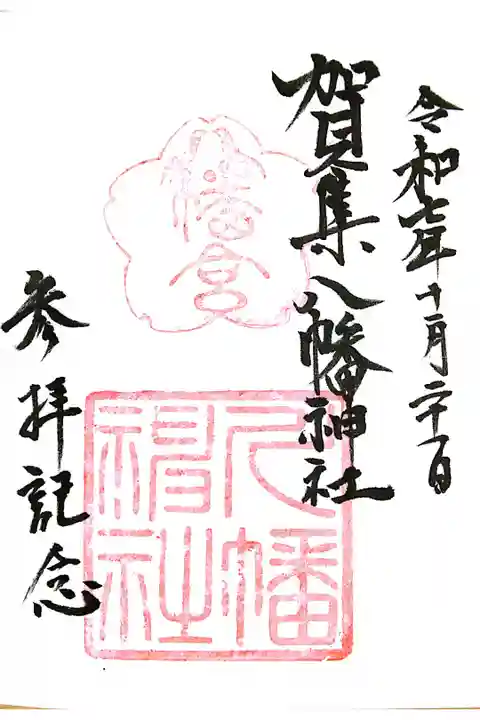 令和七年十一月二十一日
賀集八幡神社
八幡宮
八幡神社
参拝記念